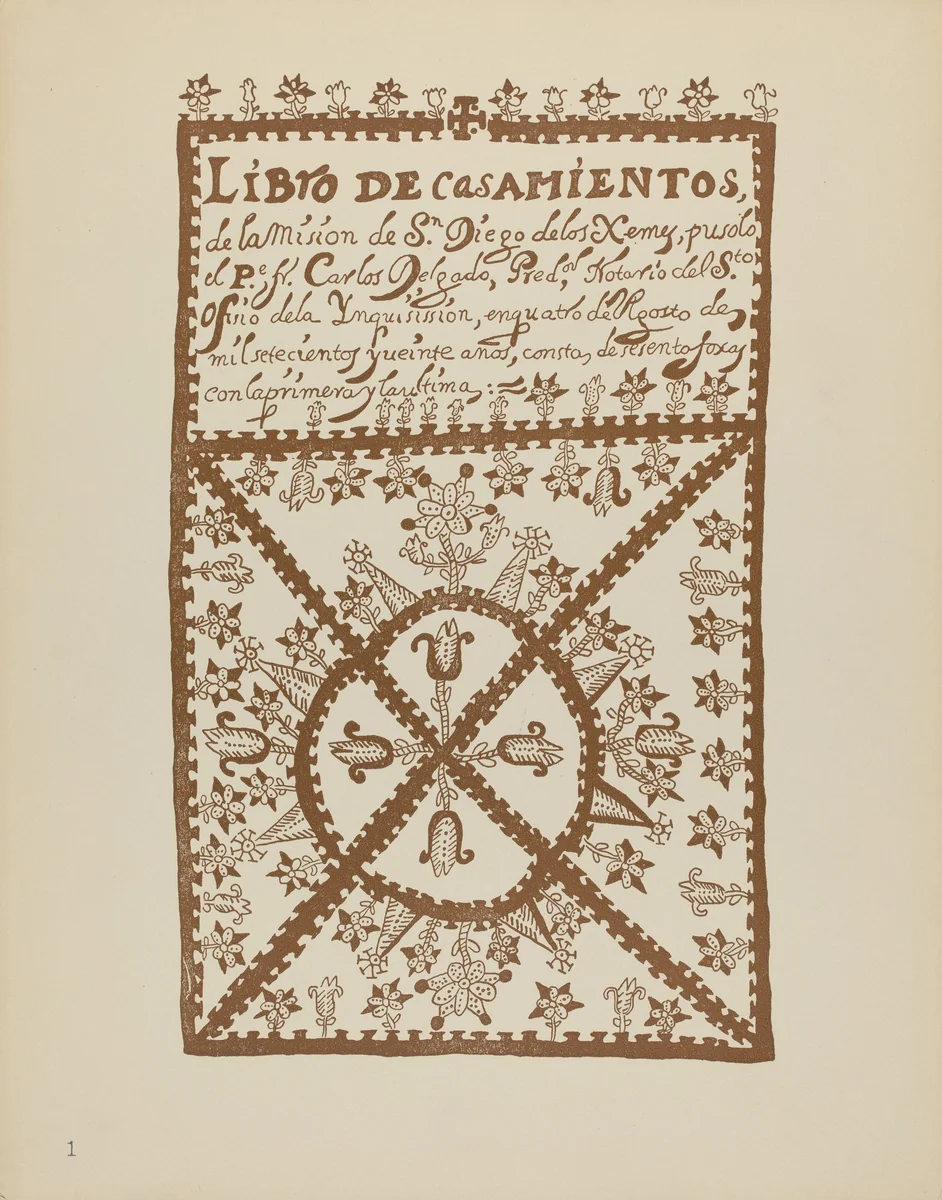 LiBro DE casAMiENTOs,
de la Mision de S.n Diego delos Xemes, pusolo
el P.e fr. Carlos Delgado, Pred.or Notario del S.to
Ofisio dela Ynquisission, enquatro de Agosto de
mil setecientos y ueinte años, consta, de sesenta foxas
con la primera y la ultima :~
1